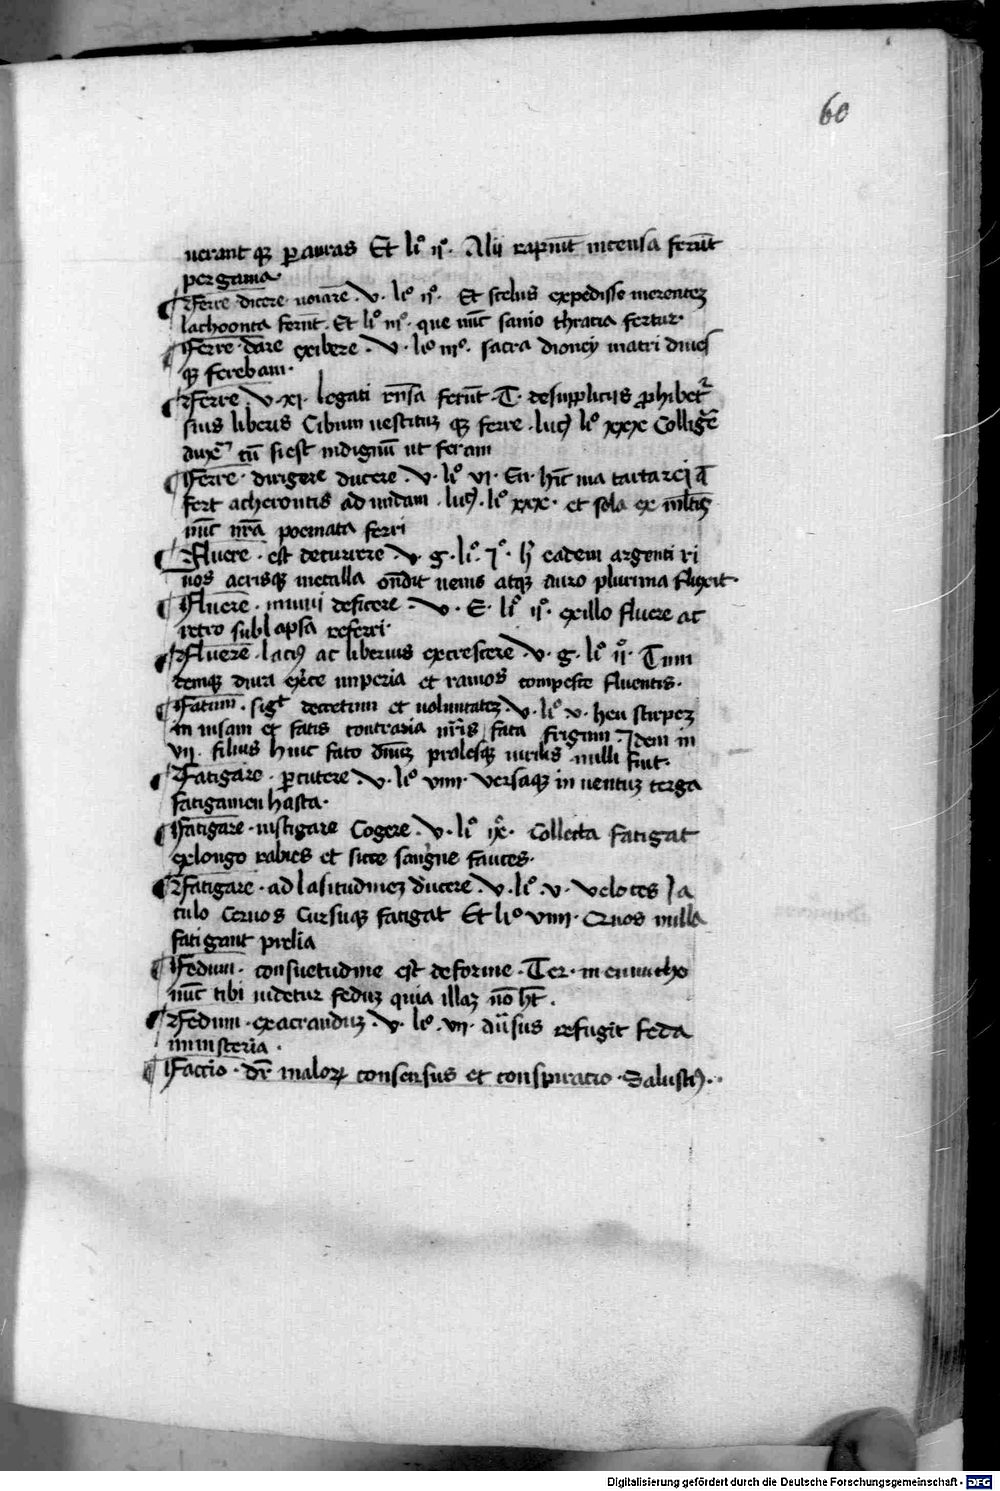 60
uerant qꝫ ꝑ auras Et li° ii°. Alij rapiūt incensa ferūt
pergama
Ferre dicere noīare. v. li° ii°. Et scelus expedisse merentez
lachoonta ferūt. Et li° iii°. que nūc sanio thracia fertur.
Ferre. dare exibere. v. li° iii°. sacra dioney matri diuis
qꝫ ferebam.
Ferre v. xi. legati rn̄sa ferūt. T. de supplicijs ꝓhibetᷣ
suis liberis Cibum uestituꝫ qꝫ ferre. luc9 li° xxx
tū si est indignū ut feram
Ferre. dirigere ducere. v. li° vi. En. hīc uia tartarei q̄
fert acherontis ad undam. luc9. li° xxx. et sola ex ml̄tis
nūc nr̄a poemata ferri
Fluere. est decurrere. v. g. li°. ii°. h̄ eadem argenti ri
uos aerisqꝫ metalla on̄dit uenis atqꝫ auro plurima fluxit.
Fluere. minui deficere. v. E. li° ii°. exillo fluere ac
retro sublapsa referri.
Fluere. laci9 ac liberius excrescere. v. g. li° ii°. Tum
demqꝫ dura exerce imperia et ramos compesce fluentis.
Fatum. sigᵗ decretum et voluntateꝫ. v. li° v. heu stirpeꝫ
in uisam et fatis contraria nr̄is fata frigum. Idem in
vii. filius huic fato diuuꝫ prolesqꝫ uirilis nulli fuit.
Fatigare. ꝑcutere. v. li° viiii. versaqꝫ in uentuꝫ terga
fatigamen hasta.
Fatigare. instigare Cogere. v. li° ix°. Collecta fatigat
exlongo rabies et sicce sangne fauces.
Fatigare. ad lasitudineꝫ ducere. v. li°. v. veloces Ja
culo Ceruos Cursuqꝫ fatigat Et li° viiii. Quos nulla
fatigant prelia
Fedum. consuetudine est deforme. Ter. in eunucho
nūc tibi uidetur feduꝫ quia illaꝫ nō hꝫ.
Fedum. execranduꝫ. v. li°. vii. refugit feda
ministeria.
Faccio. dr̄ maloꝝ consensus et conspiratio. Salusti9.
Digitalisierung gefördert durch die Deutsche Forschungsgemeinschaft - DFG